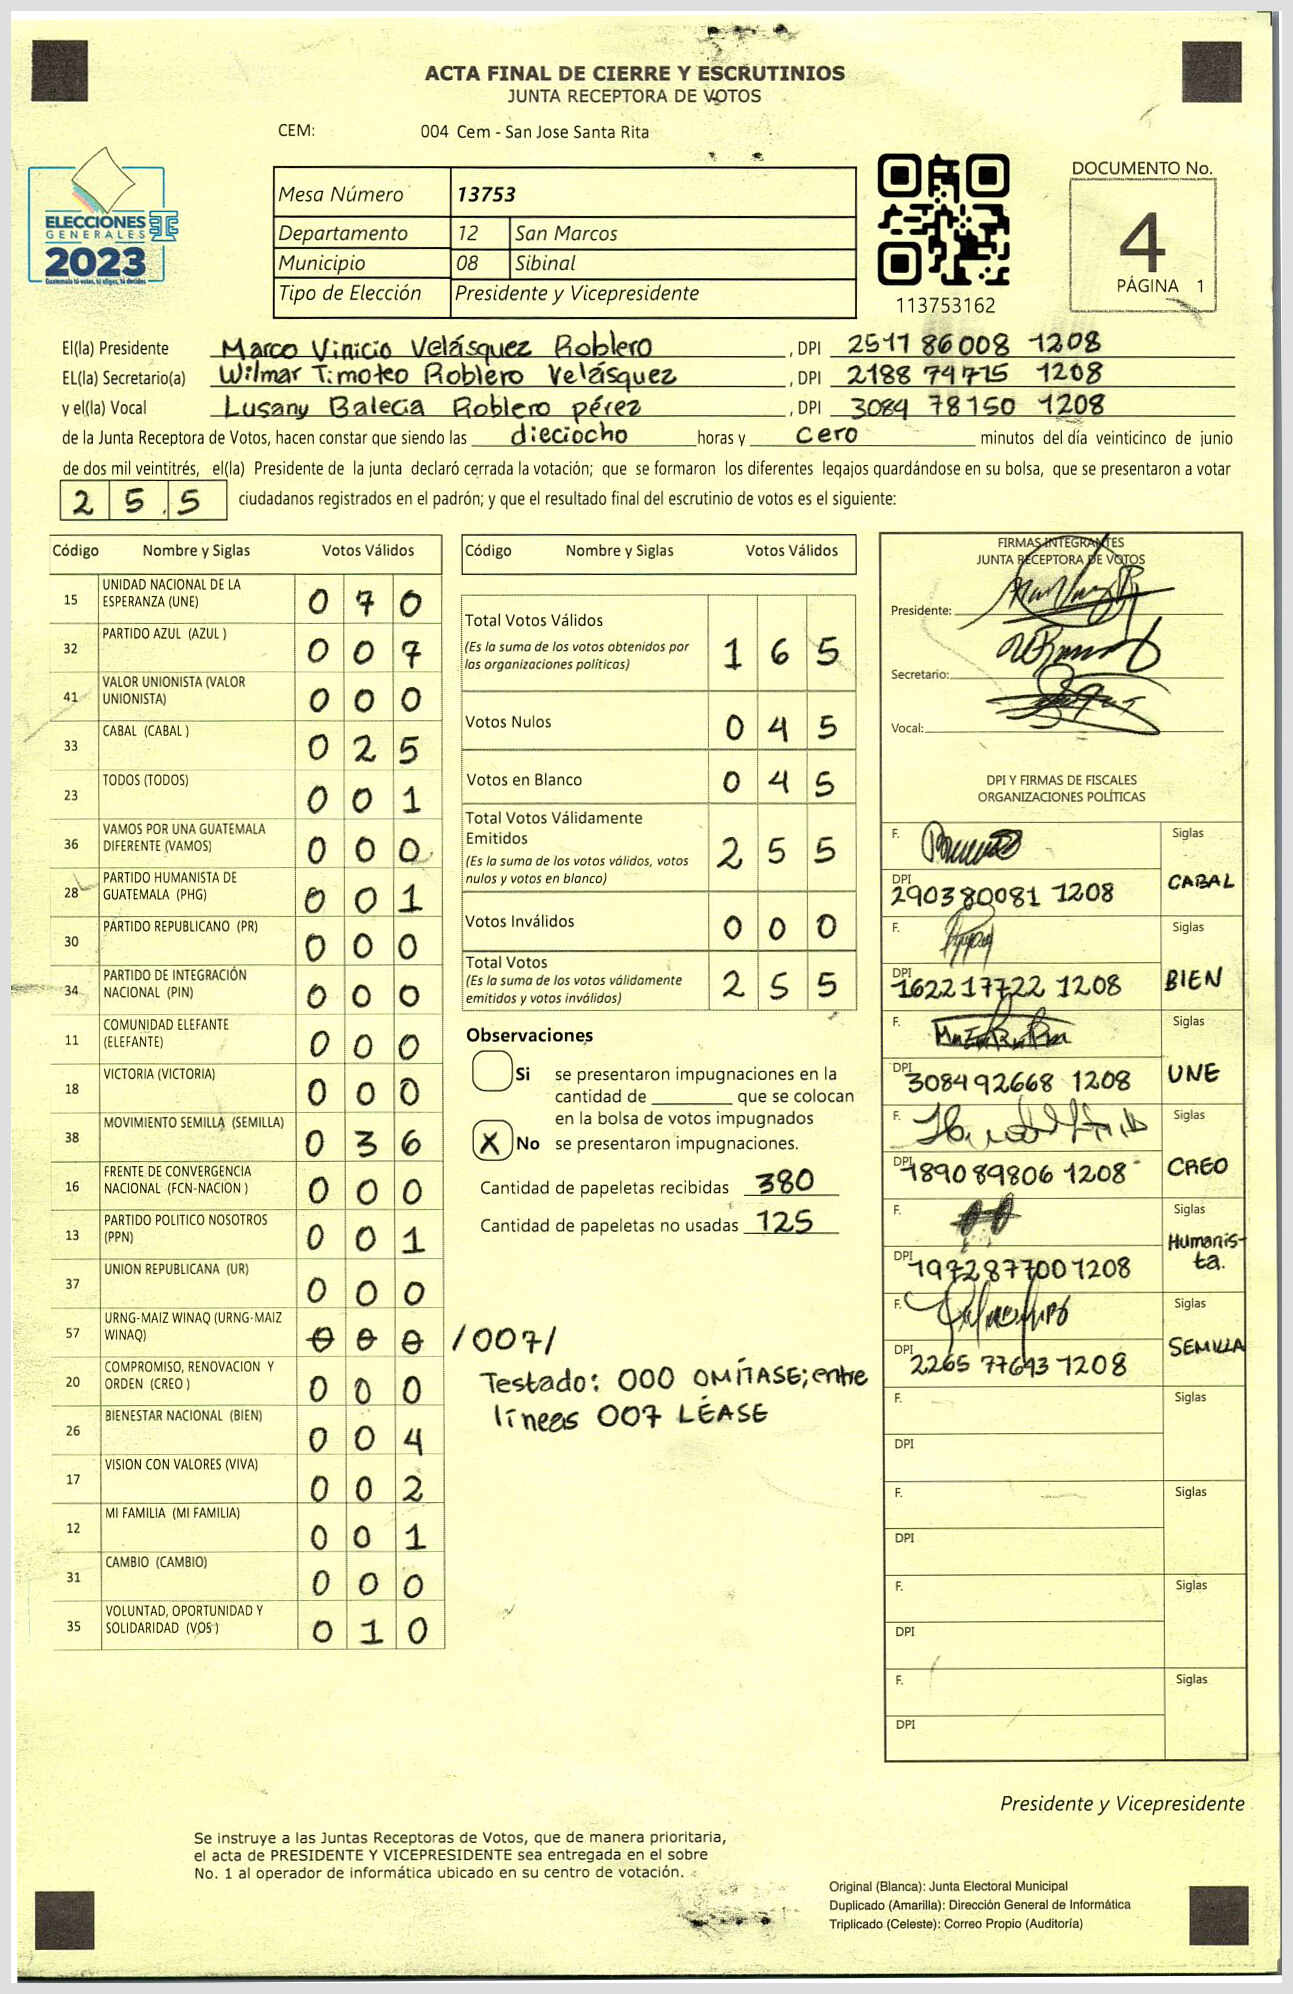 ACTA FINAL DE CIERRE Y ESCRUTINIOS
JUNTA RECEPTORA DE VOTOS
CEM: 004 Cem - San Jose Santa Rita
ELECCIONES
GENERALES
2023
Guatemala tú votas, tú eliges, tú decides
Mesa Número 13753
Departamento 12 San Marcos
Municipio 08 Sibinal
Tipo de Elección Presidente y Vicepresidente
113753162
DOCUMENTO No.
4
PÁGINA 1
El(la) Presidente Marco Vinicio Velásquez Roblero , DPI 2511 86008 1208
EL(la) Secretario(a) Wilmar Timoteo Roblero Velásquez , DPI 2188 74715 1208
y el(la) Vocal Lusany Balecia Roblero pérez , DPI 3084 78150 1208
de la Junta Receptora de Votos, hacen constar que siendo las dieciocho horas y cero minutos del día veinticinco de junio
de dos mil veintitrés, el(la) Presidente de la junta declaró cerrada la votación; que se formaron los diferentes legajos guardándose en su bolsa, que se presentaron a votar
2 5 5 ciudadanos registrados en el padrón; y que el resultado final del escrutinio de votos es el siguiente:
Código Nombre y Siglas Votos Válidos
15 UNIDAD NACIONAL DE LA ESPERANZA (UNE) 0 7 0
32 PARTIDO AZUL (AZUL ) 0 0 7
41 VALOR UNIONISTA (VALOR UNIONISTA) 0 0 0
33 CABAL (CABAL ) 0 2 5
23 TODOS (TODOS) 0 0 1
36 VAMOS POR UNA GUATEMALA DIFERENTE (VAMOS) 0 0 0
28 PARTIDO HUMANISTA DE GUATEMALA (PHG) 0 0 1
30 PARTIDO REPUBLICANO (PR) 0 0 0
34 PARTIDO DE INTEGRACIÓN NACIONAL (PIN) 0 0 0
11 COMUNIDAD ELEFANTE (ELEFANTE) 0 0 0
18 VICTORIA (VICTORIA) 0 0 0
38 MOVIMIENTO SEMILLA (SEMILLA) 0 3 6
16 FRENTE DE CONVERGENCIA NACIONAL (FCN-NACION ) 0 0 0
13 PARTIDO POLITICO NOSOTROS (PPN) 0 0 1
37 UNION REPUBLICANA (UR) 0 0 0
57 URNG-MAIZ WINAQ (URNG-MAIZ WINAQ) 0 0 0 /007/
20 COMPROMISO, RENOVACION Y ORDEN (CREO ) 0 0 0
26 BIENESTAR NACIONAL (BIEN) 0 0 4
17 VISION CON VALORES (VIVA) 0 0 2
12 MI FAMILIA (MI FAMILIA) 0 0 1
31 CAMBIO (CAMBIO) 0 0 0
35 VOLUNTAD, OPORTUNIDAD Y SOLIDARIDAD (VOS ) 0 1 0
Código Nombre y Siglas Votos Válidos
Total Votos Válidos 1 6 5
(Es la suma de los votos obtenidos por
las organizaciones politicas)
Votos Nulos 0 4 5
Votos en Blanco 0 4 5
Total Votos Válidamente
Emitidos 2 5 5
(Es la suma de los votos válidos, votos
nulos y votos en blanco)
Votos Inválidos 0 0 0
Total Votos 2 5 5
(Es la suma de los votos válidamente
emitidos y votos inválidos)
Observaciones
Si se presentaron impugnaciones en la
cantidad de ________ que se colocan
en la bolsa de votos impugnados
X No se presentaron impugnaciones.
Cantidad de papeletas recibidas 380
Cantidad de papeletas no usadas 125
Testado: 000 OMÍTASE; entre
líneas 007 LÉASE
FIRMAS INTEGRANTES
JUNTA RECEPTORA DE VOTOS
Presidente:
Secretario:
Vocal:
DPI Y FIRMAS DE FISCALES
ORGANIZACIONES POLÍTICAS
F. Siglas
DPI 290380081 1208 CABAL
F. Siglas
DPI 1622 17722 1208 BIEN
F. Siglas
DPI 3084 92668 1208 UNE
F. Siglas
DPI 1890 89806 1208 CREO
F. Siglas
DPI 1972 87700 1208 Humanis-
ta.
F. Siglas
DPI 2265 77643 1208 SEMILLA
F. Siglas
DPI
F. Siglas
DPI
F. Siglas
DPI
F. Siglas
DPI
Presidente y Vicepresidente
Se instruye a las Juntas Receptoras de Votos, que de manera prioritaria,
el acta de PRESIDENTE Y VICEPRESIDENTE sea entregada en el sobre
No. 1 al operador de informática ubicado en su centro de votación.
Original (Blanca): Junta Electoral Municipal
Duplicado (Amarilla): Dirección General de Informática
Triplicado (Celeste): Correo Propio (Auditoría)